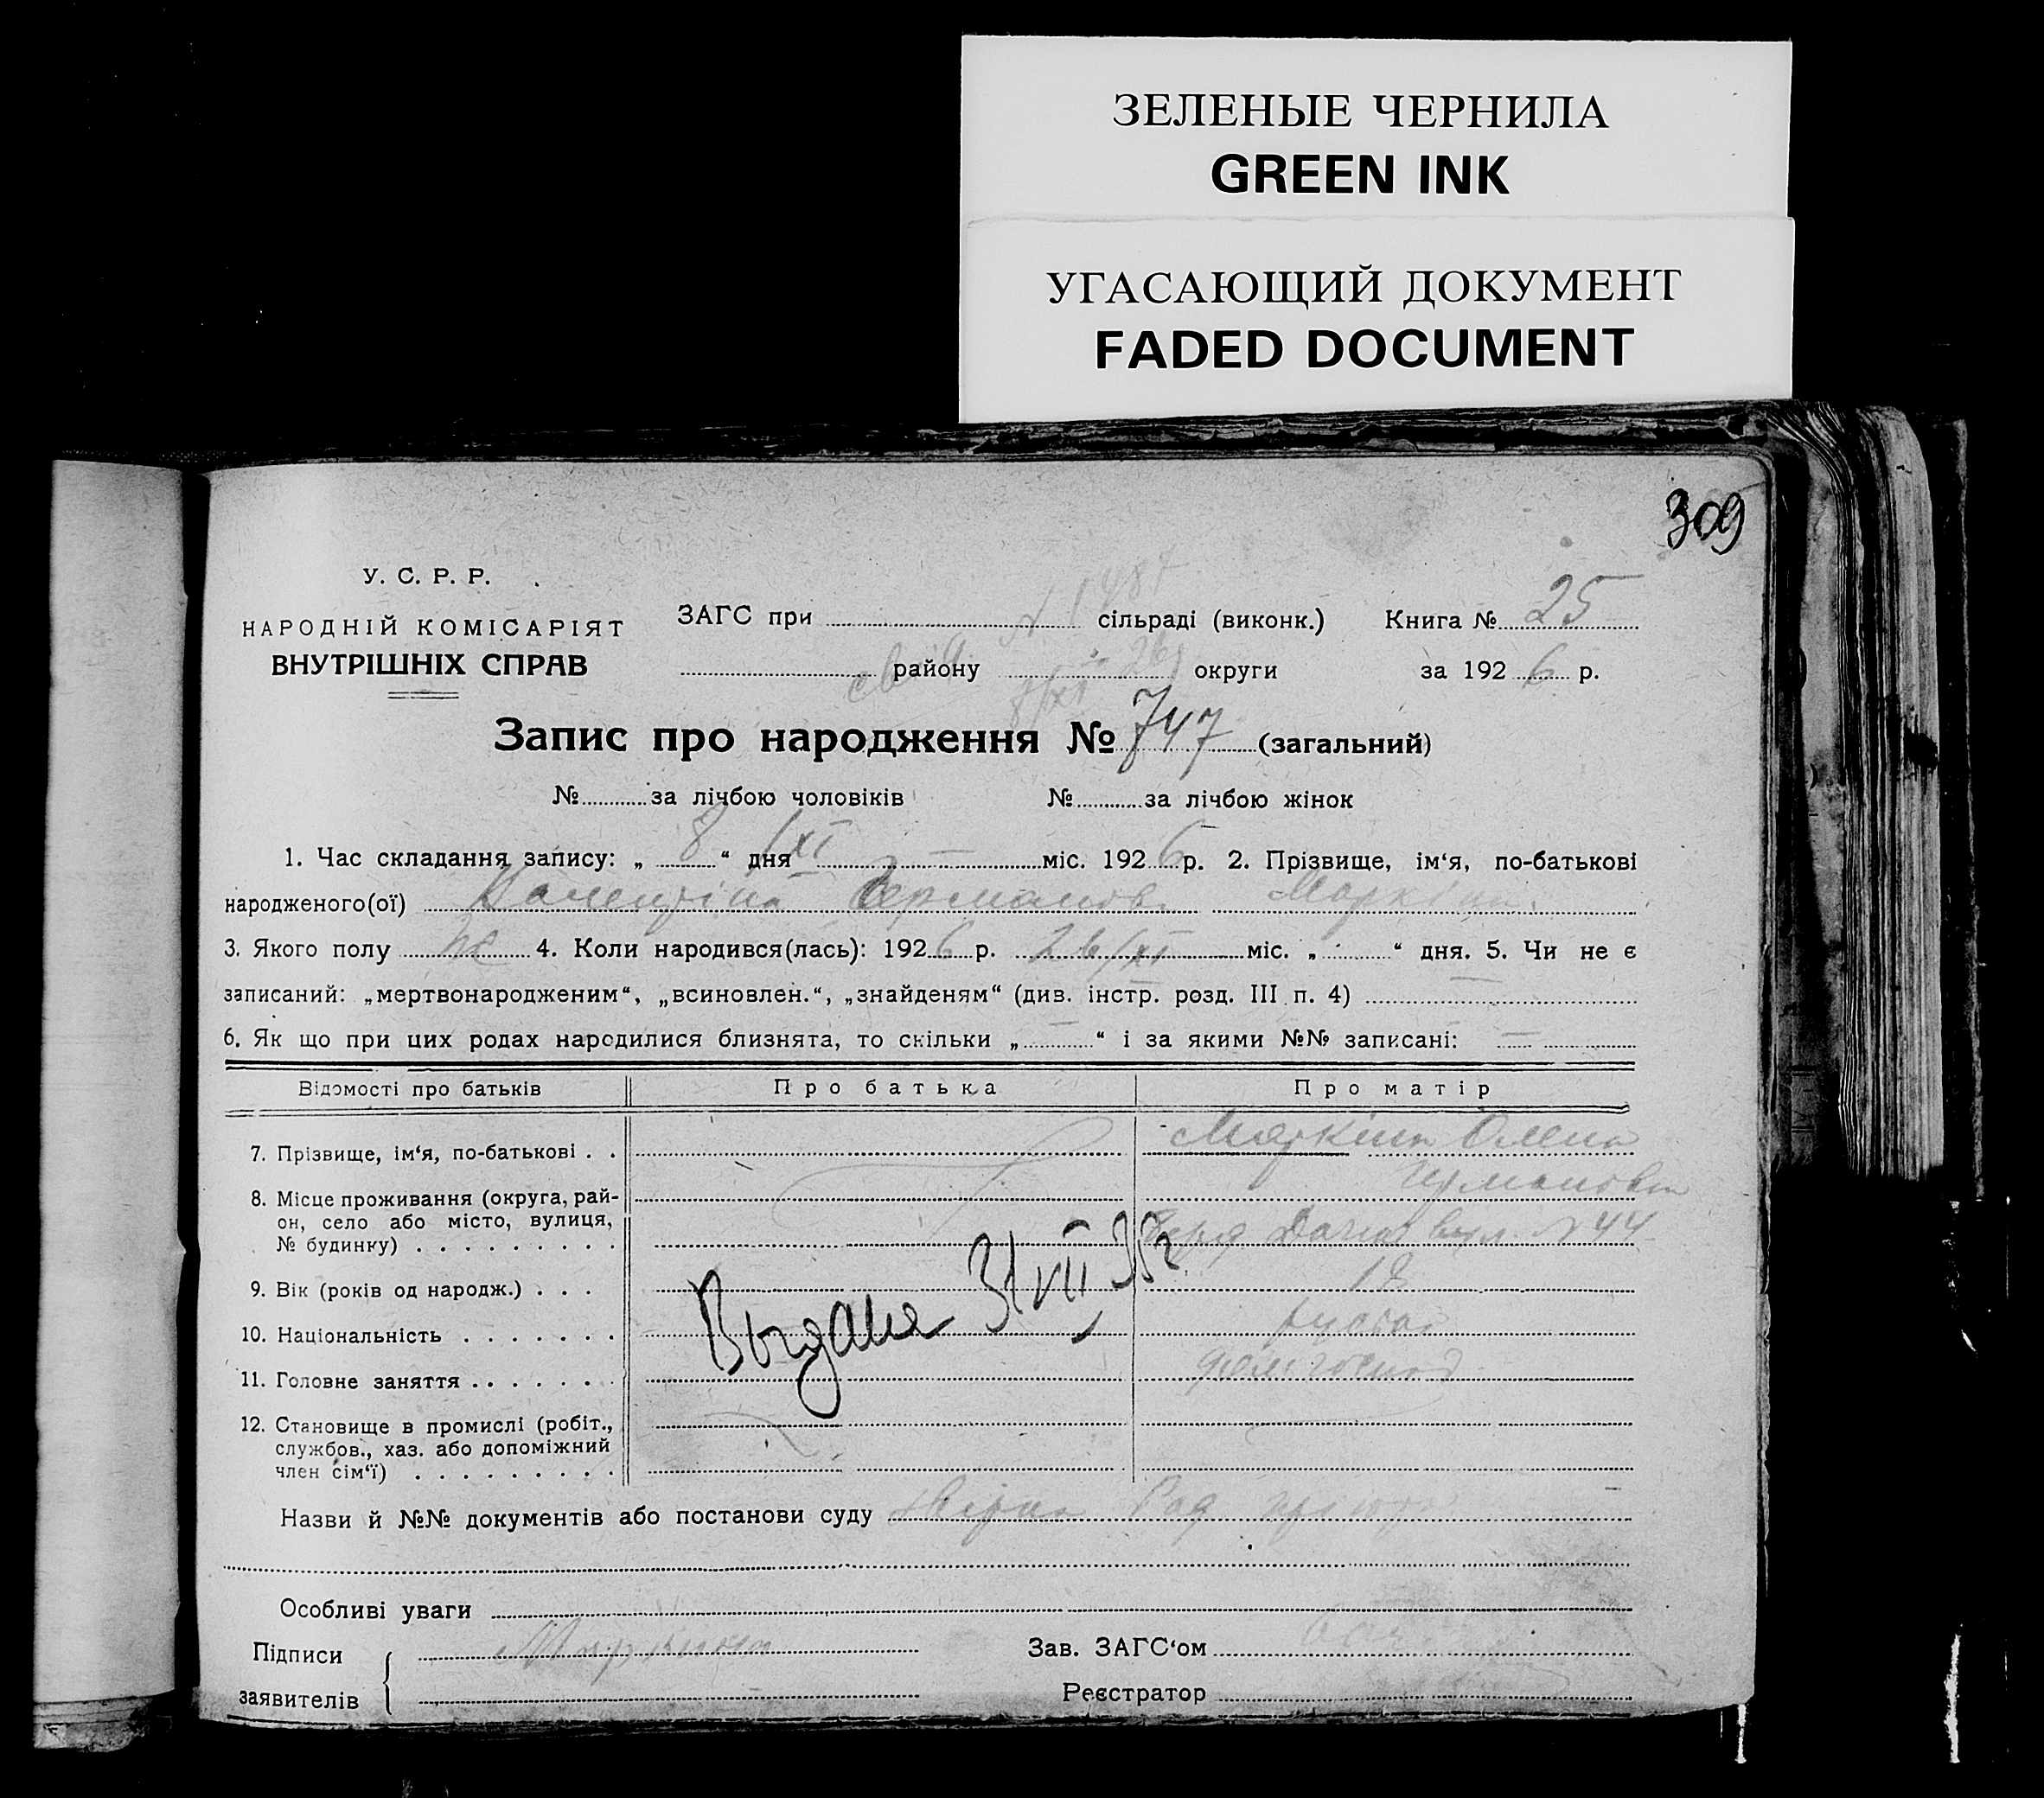 ЗЕЛЕНЫЕ ЧЕРНИЛА
GREEN INK
УГАСАЮЩИЙ ДОКУМЕНТ
FADED DOCUMENT
309
У. С. Р. Р.
НАРОДНІЙ КОМІСАРІЯТ
ВНУТРІШНІХ СПРАВ
N 1487
ЗАГС при сільраді (виконк.) Книга № 25
району округи за 1926 р.
Запис про народження № 747 (загальний)
№ за лічбою чоловіків № за лічбою жінок
1. Час складання запису: „ 8 “ дня /XI — міс. 1926 р. 2. Прізвище, ім‘я, по-батькові
народженого(ої) Валентіна Германов. Маркіна
3. Якого полу ж 4. Коли народився(лась): 1926 р. 26/XI міс. „ “ дня. 5. Чи не є
записаний: „мертвонародженим“, „всиновлен.“, „знайденям“ (див. інстр. розд. III п. 4) —
6. Як що при цих родах народилися близнята, то скільки „ — “ і за якими №№ записані: —
Відомості про батьків Про батька Про матір
7. Прізвище, ім‘я, по-батькові . . Маркіна Олена
Германовна
8. Місце проживання (округа, рай-
он, село або місто, вулиця,
№ будинку) . . . . . . . . . вул. N 44
9. Вік (років од народж.) . . . 18
10. Національність . . . . . . .
11. Головне заняття . . . . . . .
Выдана 31 VII 35 г
12. Становище в промислі (робіт.,
службов., хаз. або допоміжний
член сім‘ї) . . . . . . . . .
Назви й №№ документів або постанови суду
Особливі уваги
Підписи Маркина Зав. ЗАГС‘ом
заявителів Реєстратор